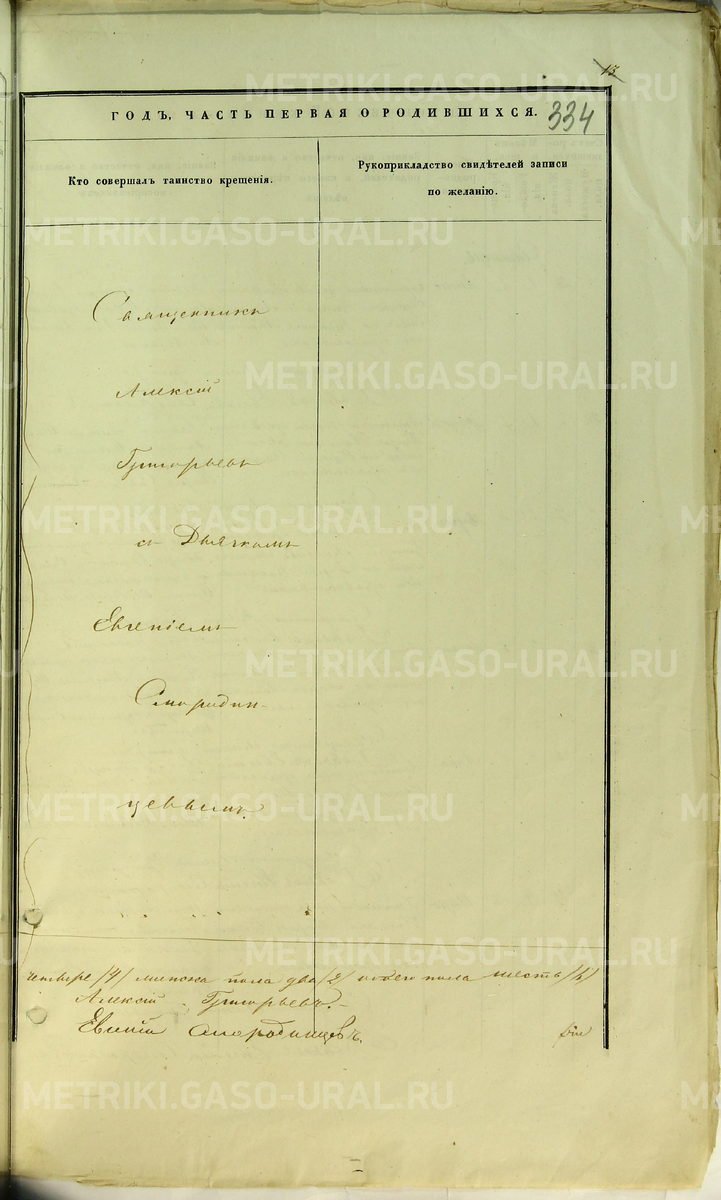 13
ГОДЪ, ЧАСТЬ ПЕРВАЯ О РОДИВШИХСЯ.
334
Кто совершалъ таинство крещенія.
Рукоприкладство свидѣтелей записи
по желанію.
Священникъ
Алексій
Григорьевъ
съ Дьячкомъ
Евгеніемъ
Смородин-
цевымъ.
четыре /4/ женска пола два /2/ обоего пола шесть /6/
Алексій Григорьевъ.
Евгеній Смородинцевъ.
METRIKI.GASO-URAL.RU